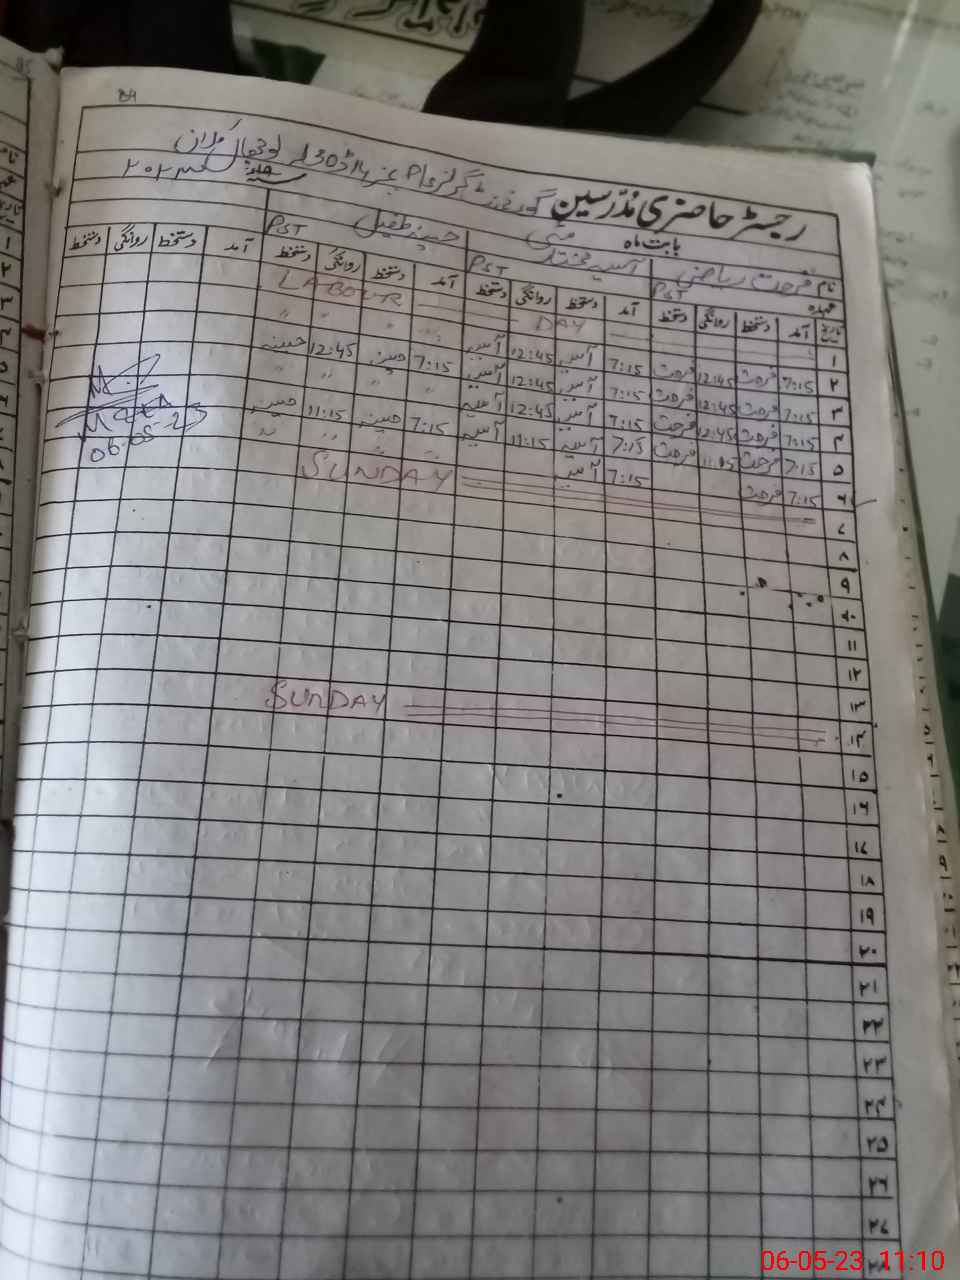 رجسٹر حاضری مدرسین گورنمنٹ گرلز
بابت ماہ مئی ۲۰۲۳
نام فرحت ریاض آسیہ حسینہ طفیل
عہدہ PST PST PST
تاریخ آمد دستخط روانگی دستخط آمد دستخط روانگی دستخط آمد دستخط روانگی دستخط آمد دستخط روانگی دستخط
۱ LABOUR DAY
۲ 7:15 فرحت 12:45 فرحت 7:15 آسیہ 12:45 آسیہ 〃 〃 〃 〃
۳ 7:15 فرحت 12:45 فرحت 7:15 آسیہ 12:45 آسیہ 7:15 حسینہ 12:45 حسینہ
۴ 7:15 فرحت 12:45 فرحت 7:15 آسیہ 12:45 آسیہ 〃 〃 〃 〃
۵ 7:15 فرحت 11:15 فرحت 7:15 آسیہ 11:15 آسیہ 7:15 حسینہ 11:15 حسینہ
۶ 7:15 فرحت 7:15 آسیہ 〃 〃 〃 〃
06-05-23
۷ SUNDAY
۸
۹
۱۰
۱۱
۱۲
۱۳
۱۴ SUNDAY
۱۵
۱۶
۱۷
۱۸
۱۹
۲۰
۲۱
۲۲
۲۳
۲۴
۲۵
۲۶
۲۷
۲۸
06-05-23 11:10